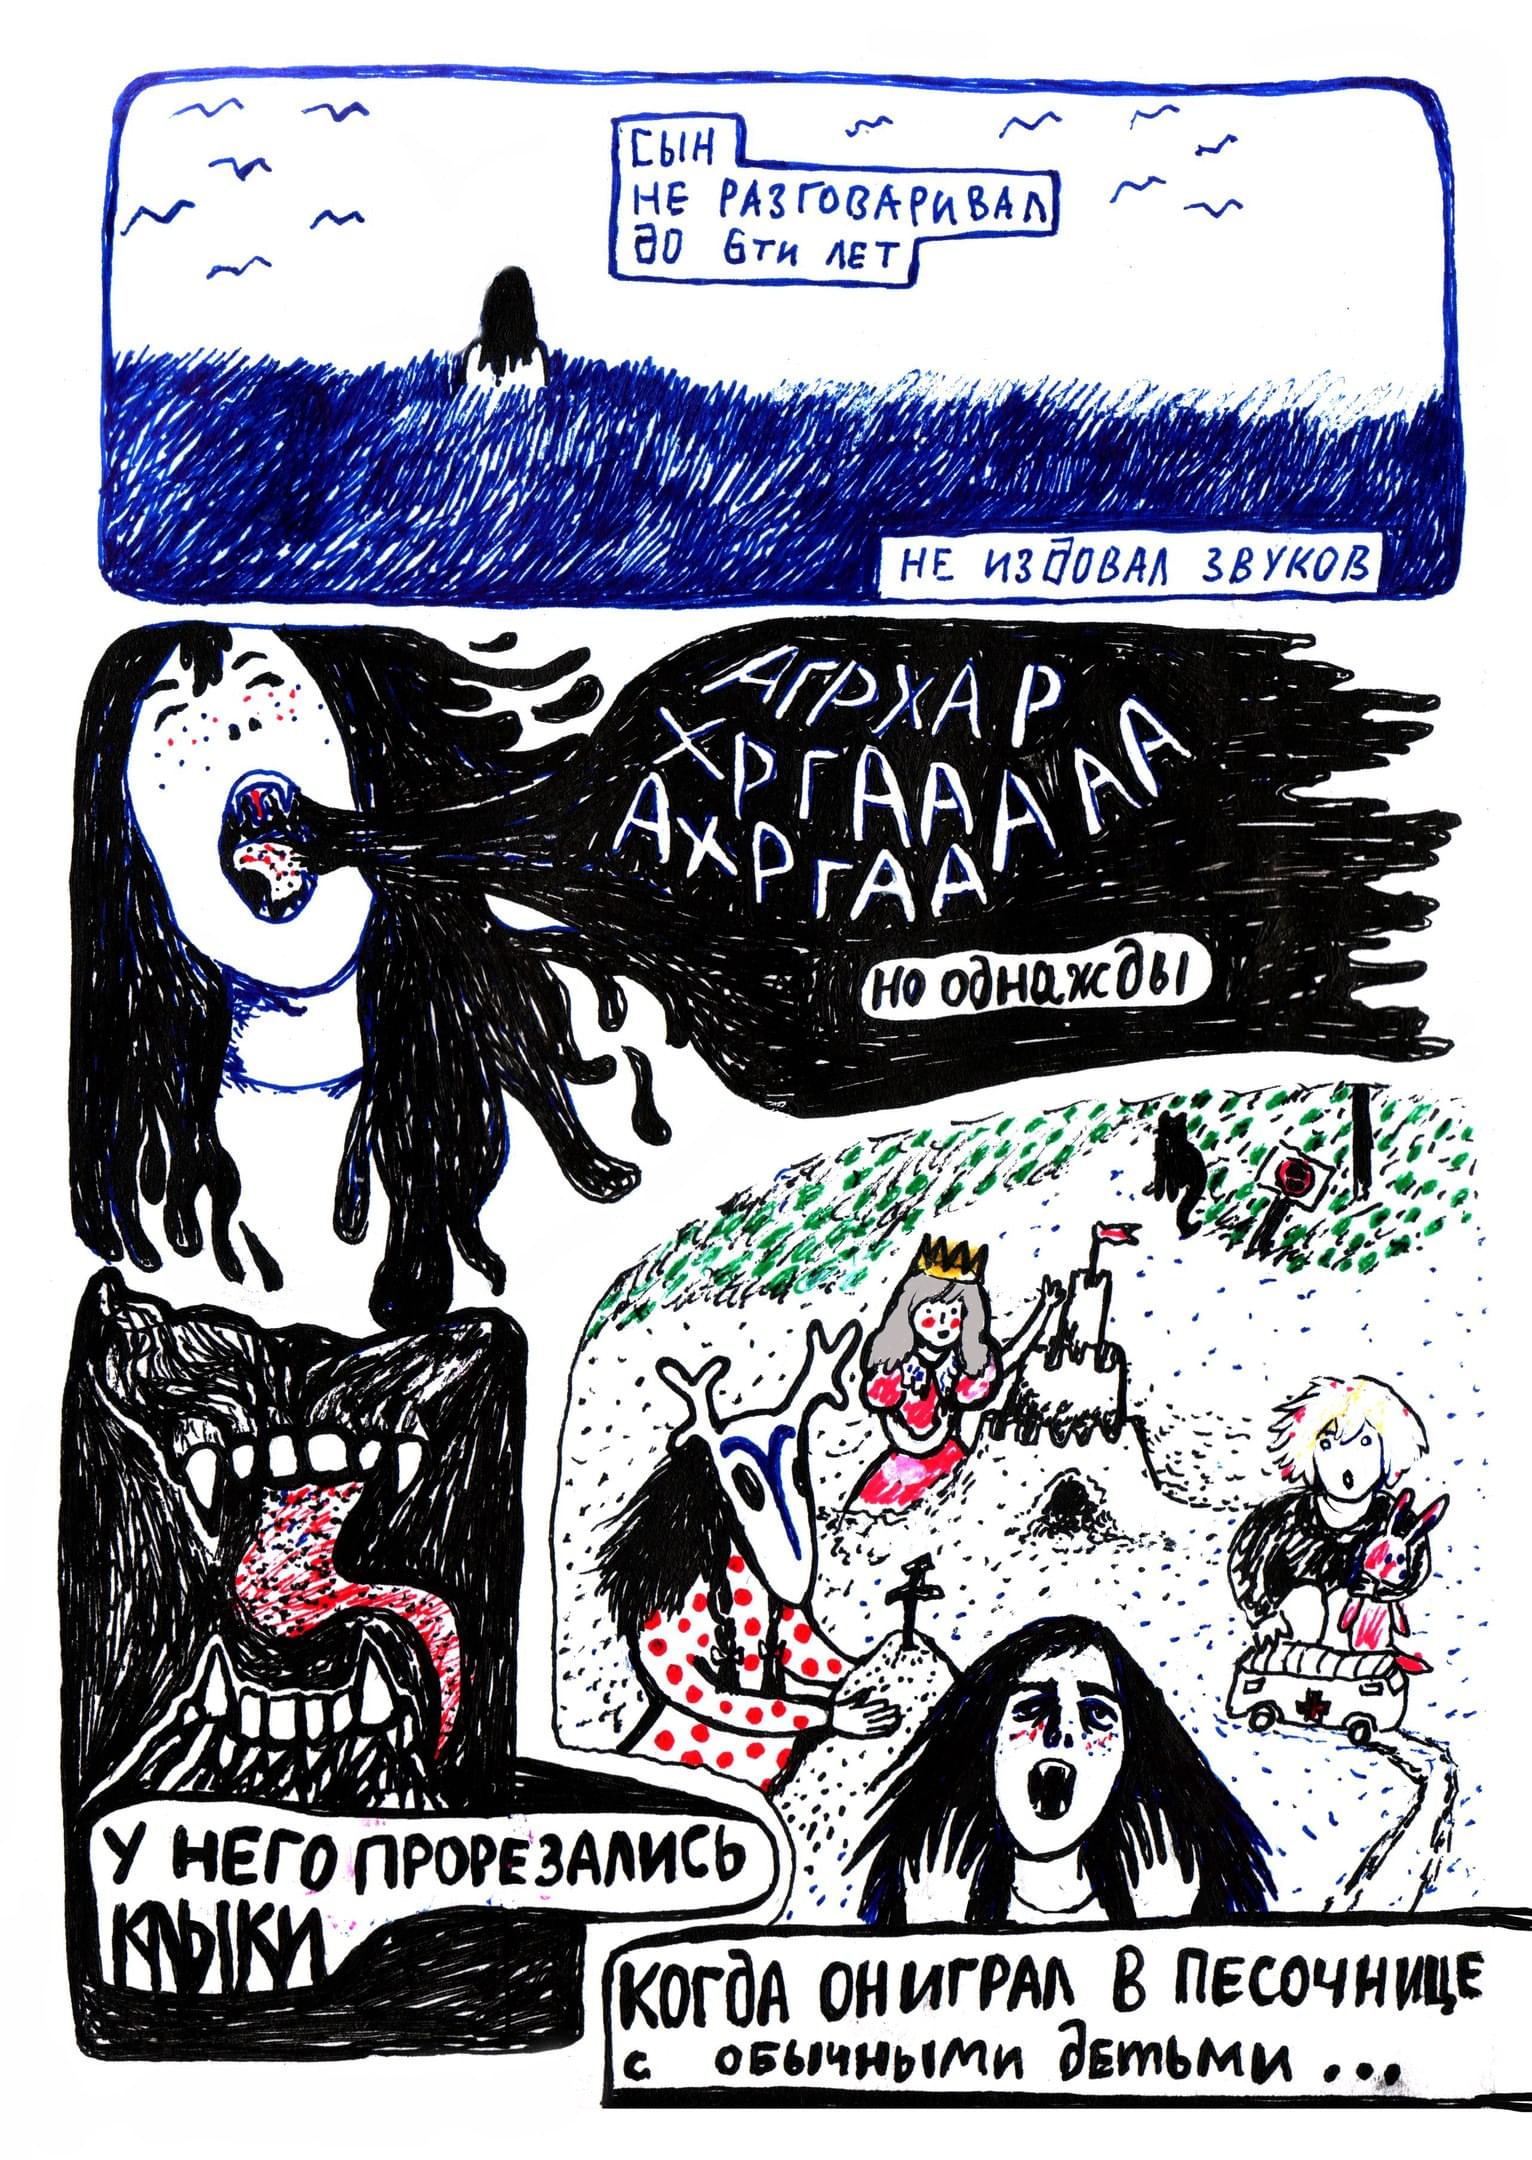 СЫН
НЕ РАЗГОВАРИВАЛ
ДО 6ТИ ЛЕТ
НЕ ИЗДОВАЛ ЗВУКОВ
АГРХАР
ХРГААААА
АХРГАА
НО ОДНАЖДЫ
У НЕГО ПРОРЕЗАЛИСЬ
КЛЫКИ
КОГДА ОН ИГРАЛ В ПЕСОЧНИЦЕ
С ОБЫЧНЫМИ ДЕТЬМИ...